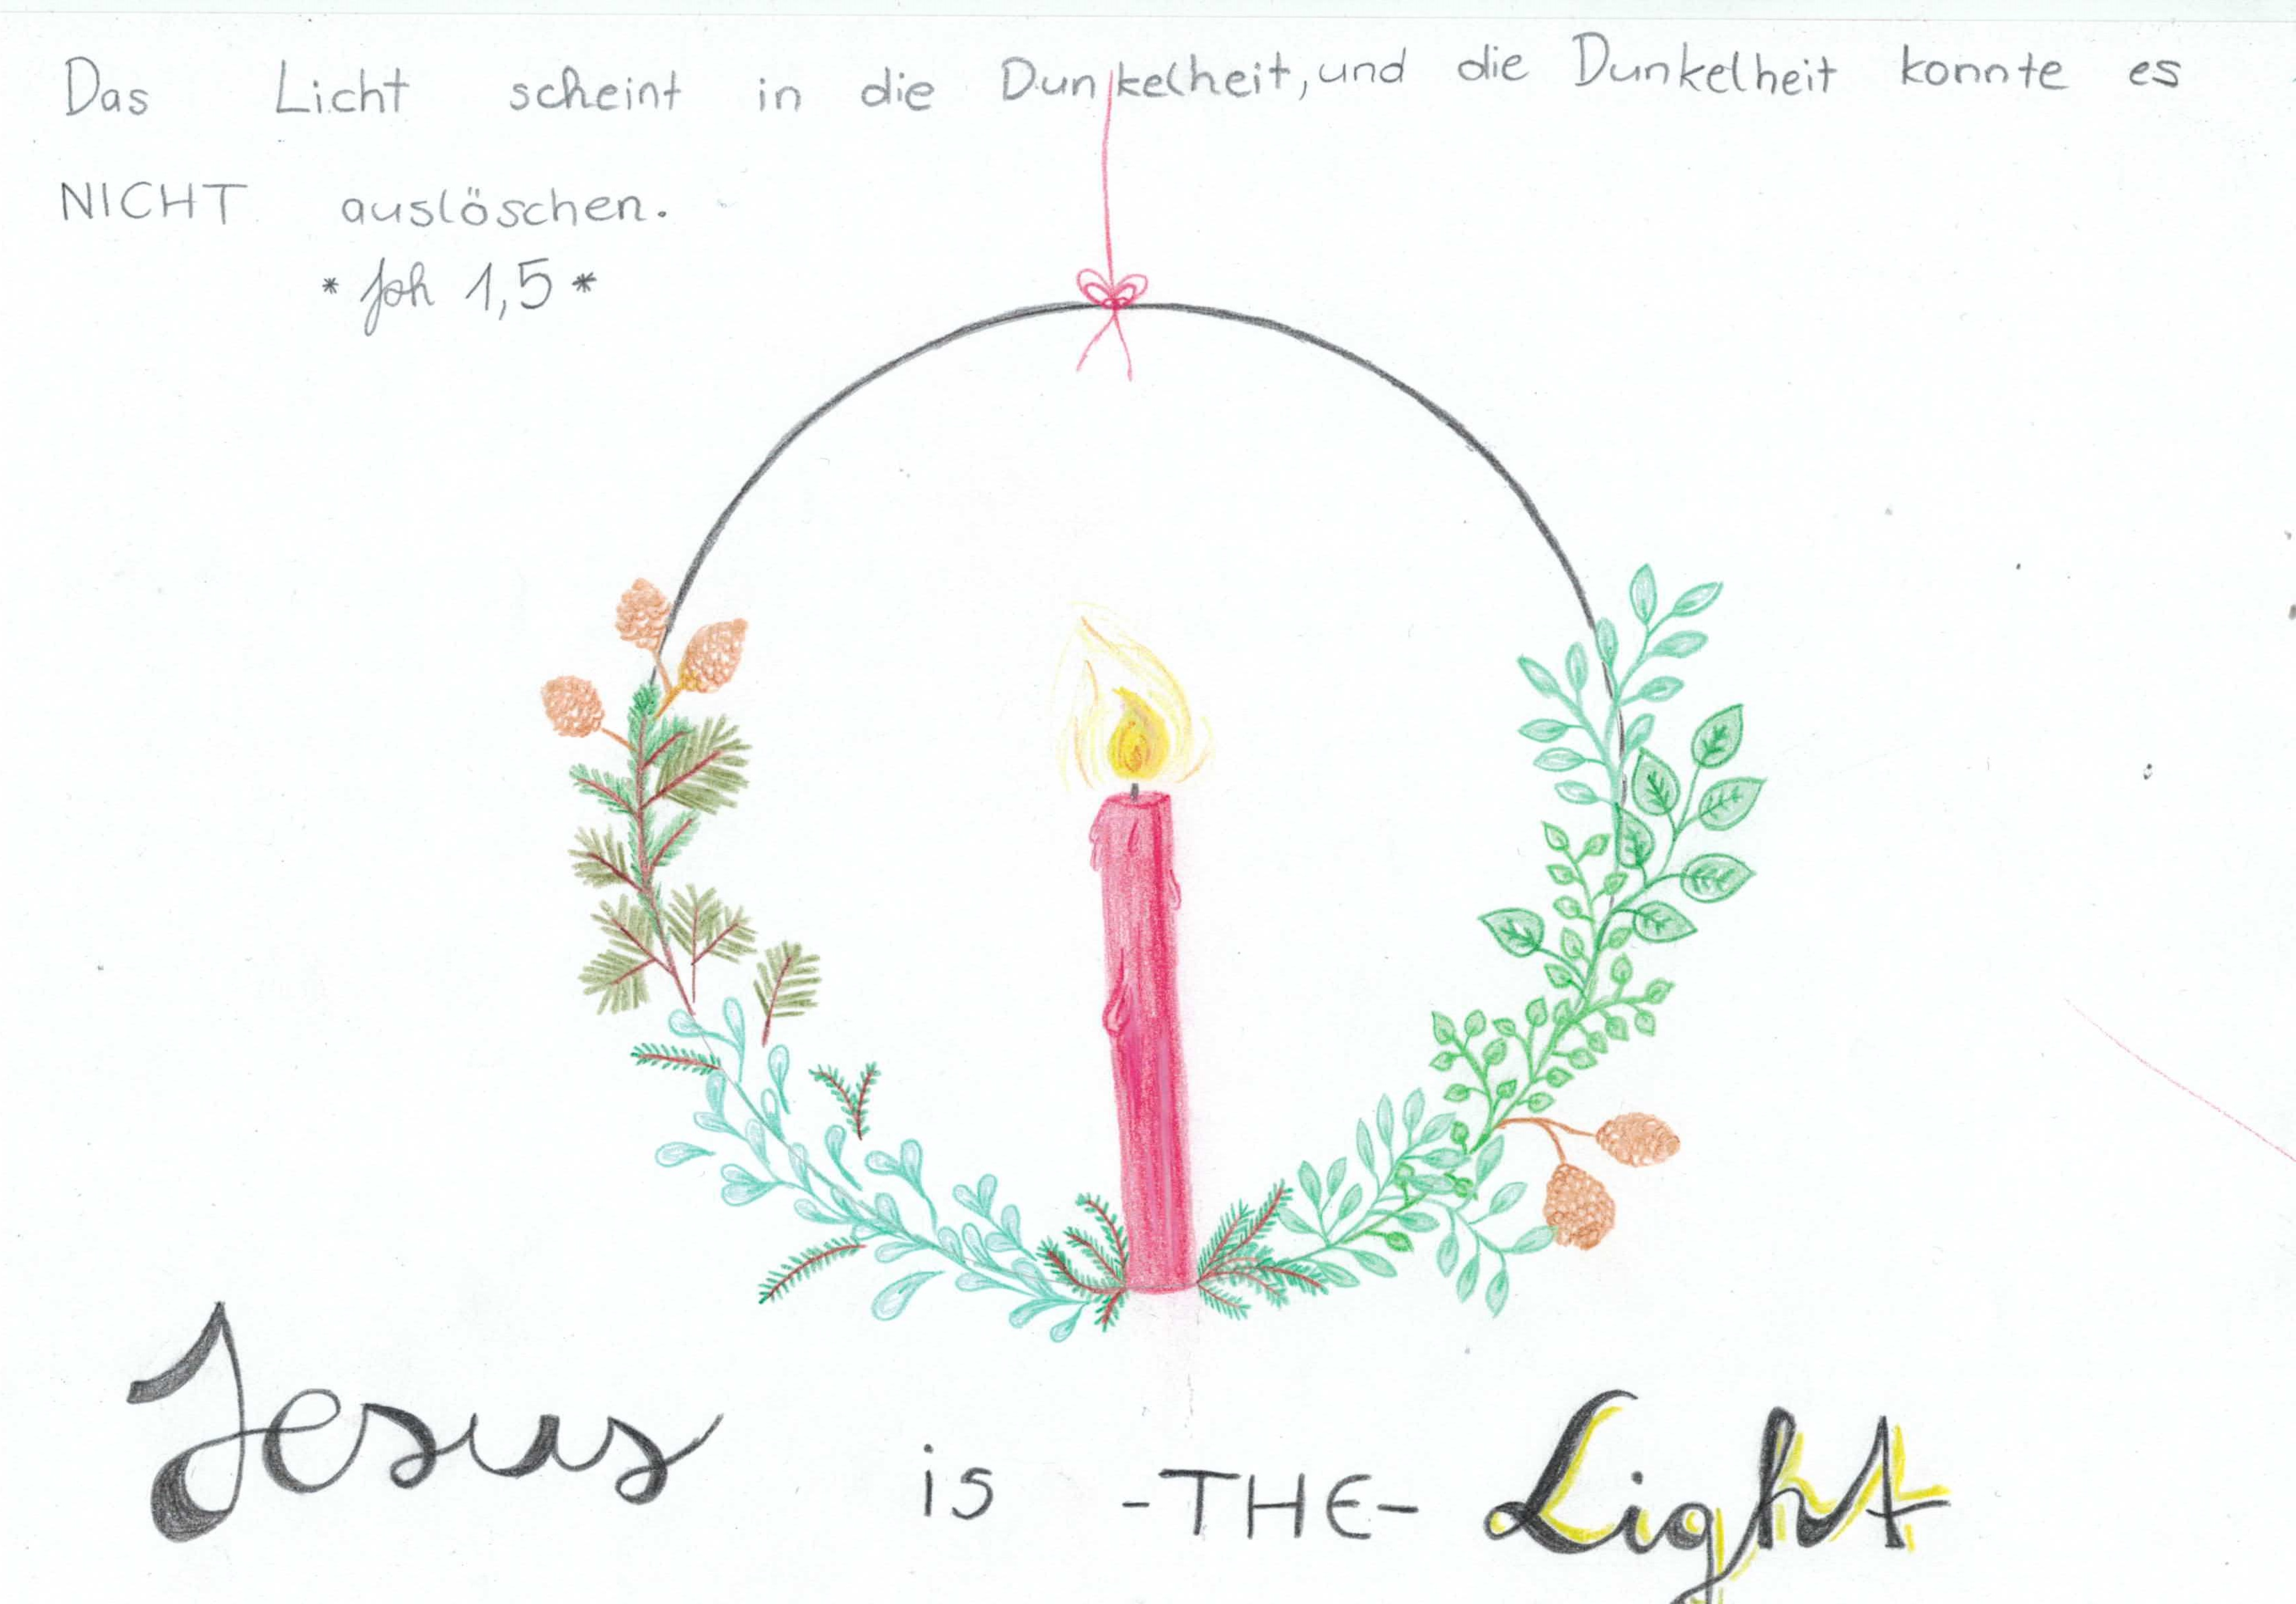 Das Licht scheint in die Dunkelheit, und die Dunkelheit konnte es
NICHT auslöschen.
* Joh 1,5 *
Jesus is -THE- Light